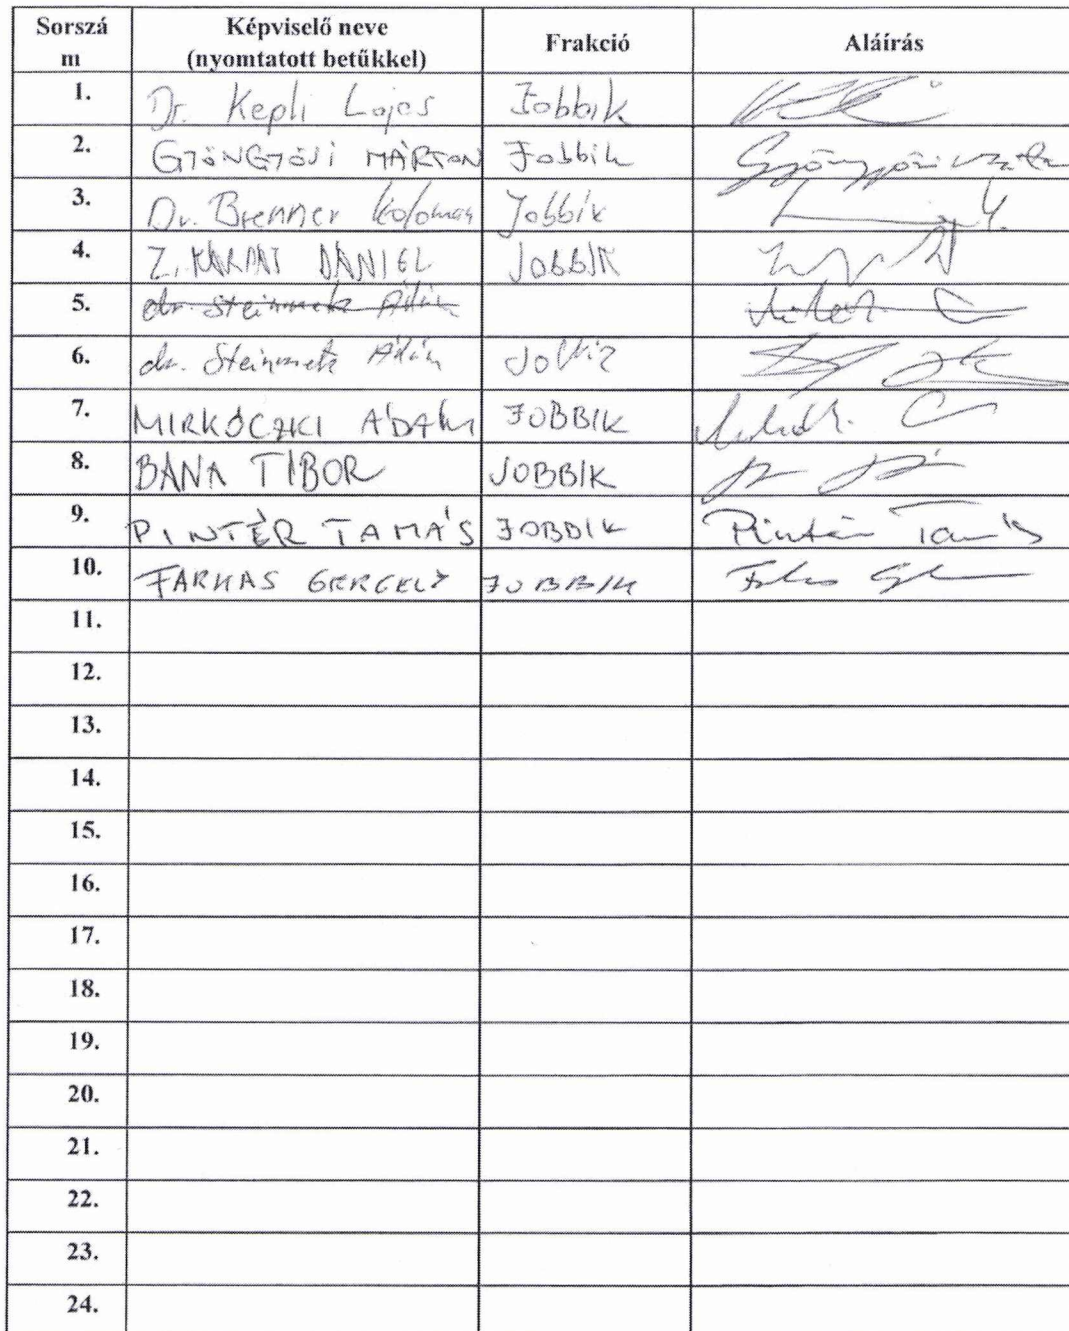 Sorszá
m
Képviselő neve
(nyomtatott betűkkel)
Frakció
Aláírás
1. Dr. Kepli Lajos Jobbik
2. GYÖNGYÖSI MÁRTON Jobbik Gyöngyösi
3. Dr. Brenner Koloman Jobbik
4. Z. KÁRPÁT DÁNIEL JOBBIK
5. dr. Steinmetz Ádám
6. dr. Steinmetz Ádám Jobbik
7. MIRKÓCZKI ÁDÁM JOBBIK
8. BANA TIBOR JOBBIK
9. PINTÉR TAMÁS JOBBIK Pintér Tamás
10. FARKAS GERGELY JOBBIK
11.
12.
13.
14.
15.
16.
17.
18.
19.
20.
21.
22.
23.
24.